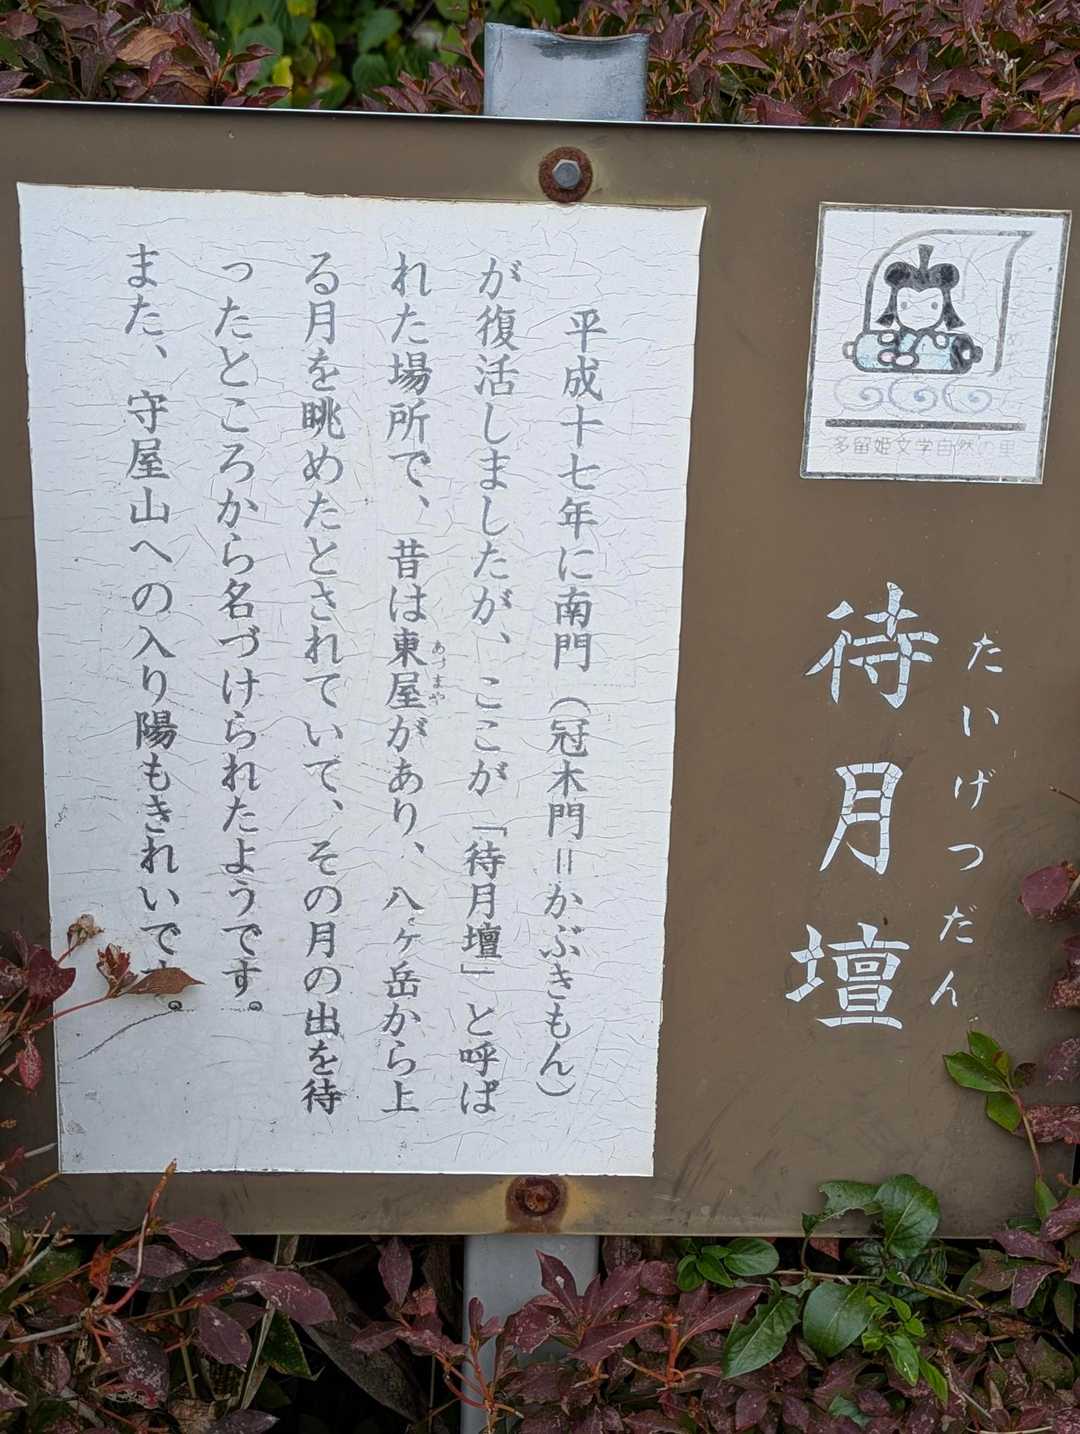 待月壇
たいげつだん
多留姫文学自然の里
平成十七年に南門（冠木門＝かぶきもん）
が復活しましたが、ここが「待月壇」と呼ば
れた場所で、昔は東屋があり、八ヶ岳から上
あずまや
る月を眺めたとされていて、その月の出を待
ったところから名づけられたようです。
また、守屋山への入り陽もきれいです。